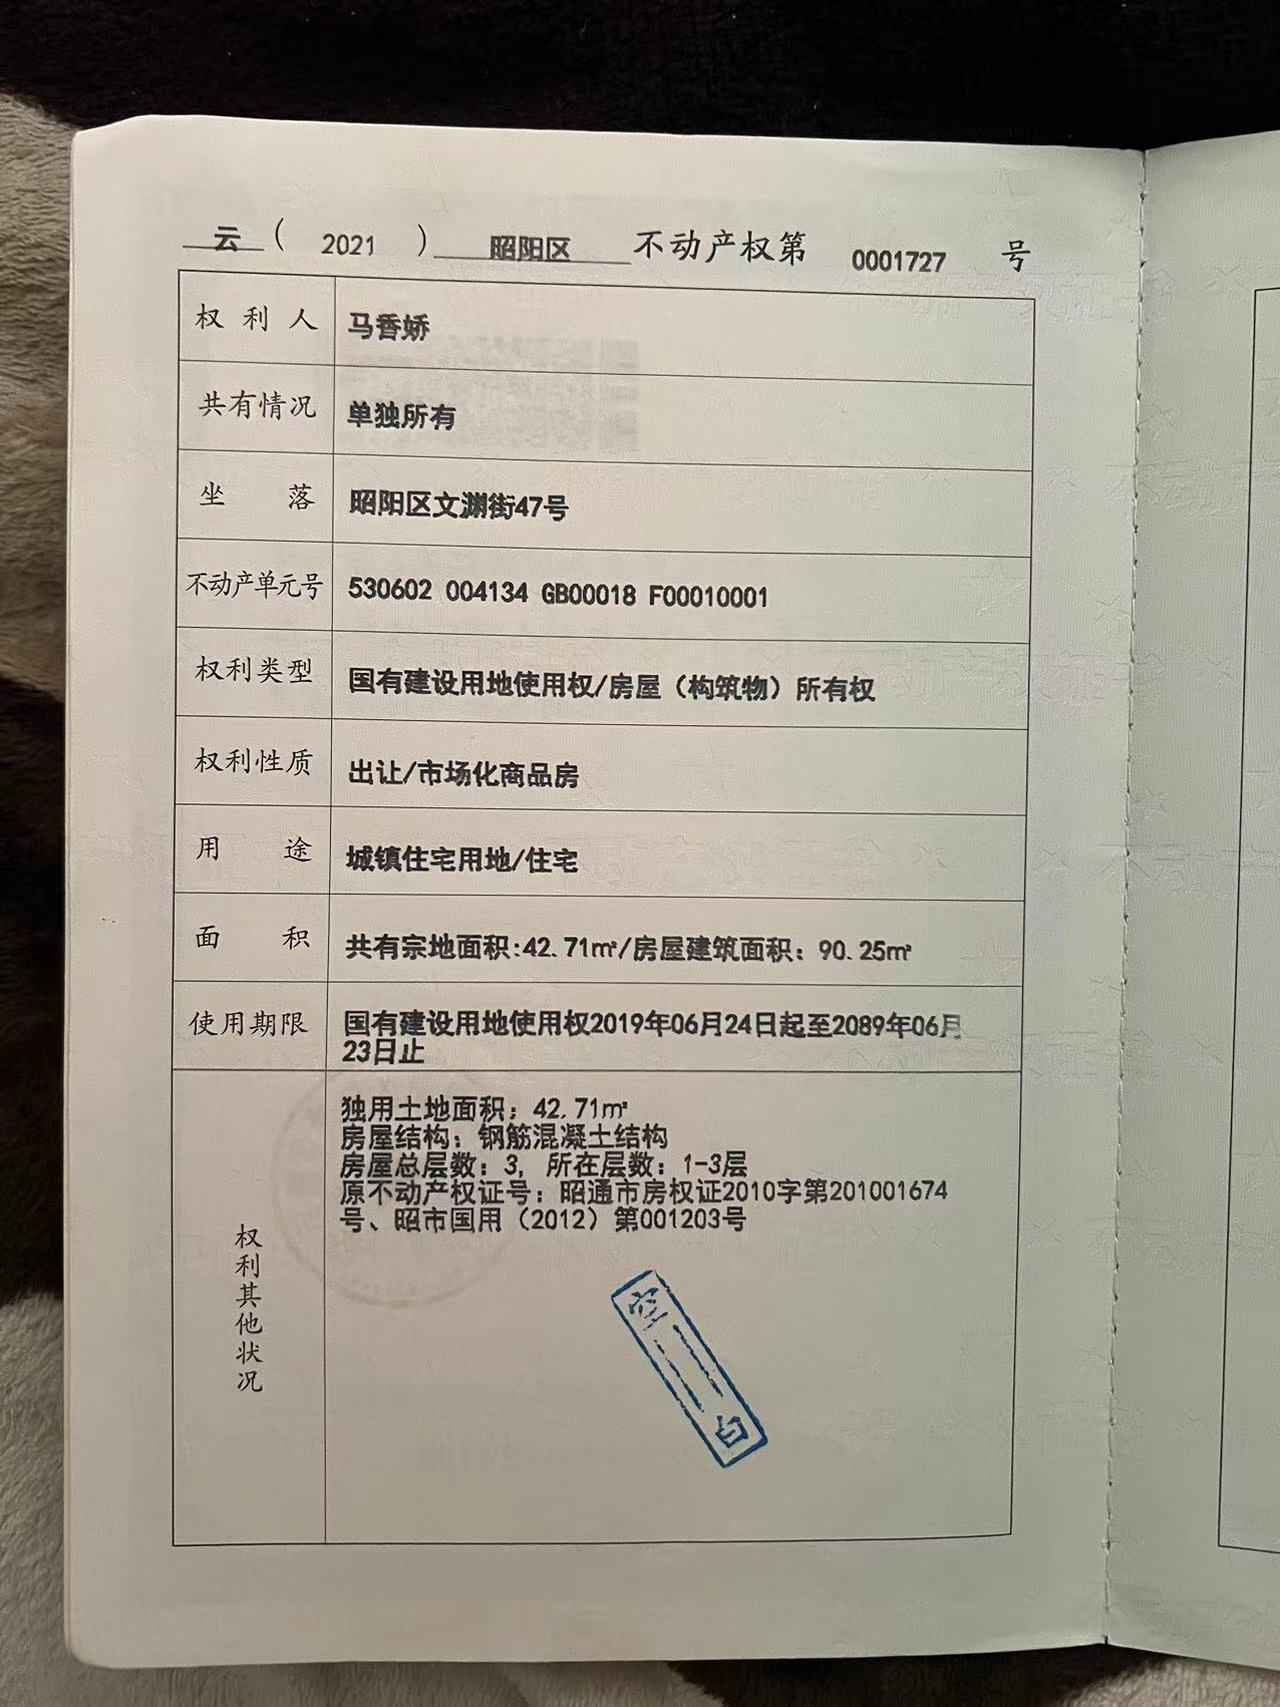 云（2021）昭阳区不动产权第0001727号
权利人 马香娇
共有情况 单独所有
坐落 昭阳区文渊街47号
不动产单元号 530602 004134 GB00018 F00010001
权利类型 国有建设用地使用权/房屋（构筑物）所有权
权利性质 出让/市场化商品房
用途 城镇住宅用地/住宅
面积 共有宗地面积:42.71㎡/房屋建筑面积：90.25㎡
使用期限 国有建设用地使用权2019年06月24日起至2089年06月
23日止
权利其他状况
独用土地面积：42.71㎡
房屋结构：钢筋混凝土结构
房屋总层数：3，所在层数：1-3层
原不动产权证号：昭通市房权证2010字第201001674
号、昭市国用（2012）第001203号
空白